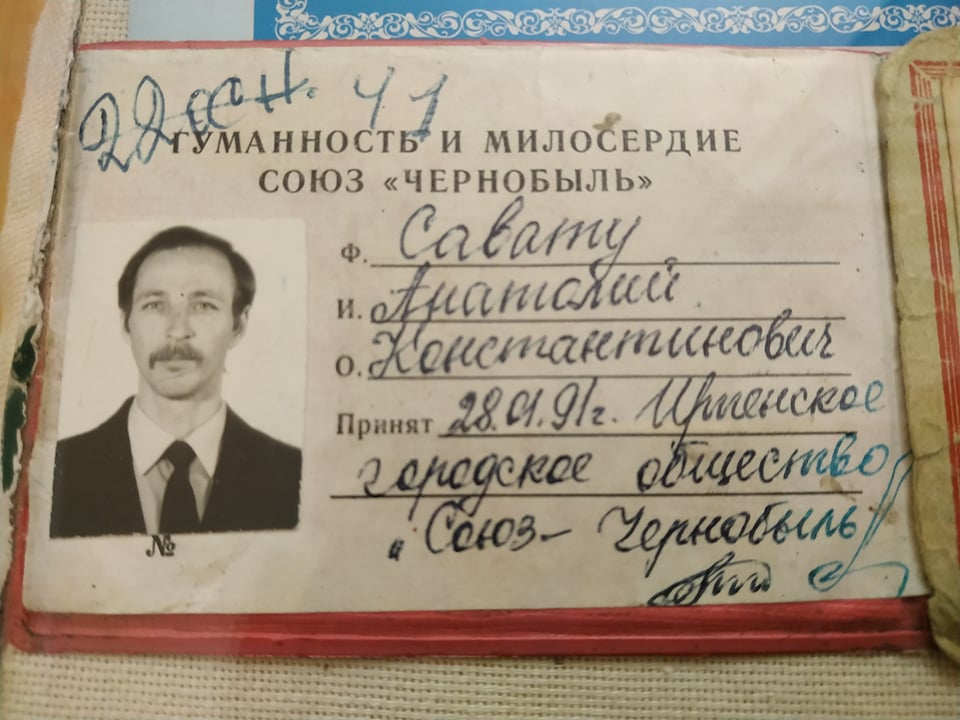 22 41
ГУМАННОСТЬ И МИЛОСЕРДИЕ
СОЮЗ «ЧЕРНОБЫЛЬ»
Ф. Савату
И. Анатолий
О. Константинович
Принят 28.01.91г. Ирпенское
городское общество
„Союз- Чернобыль
№